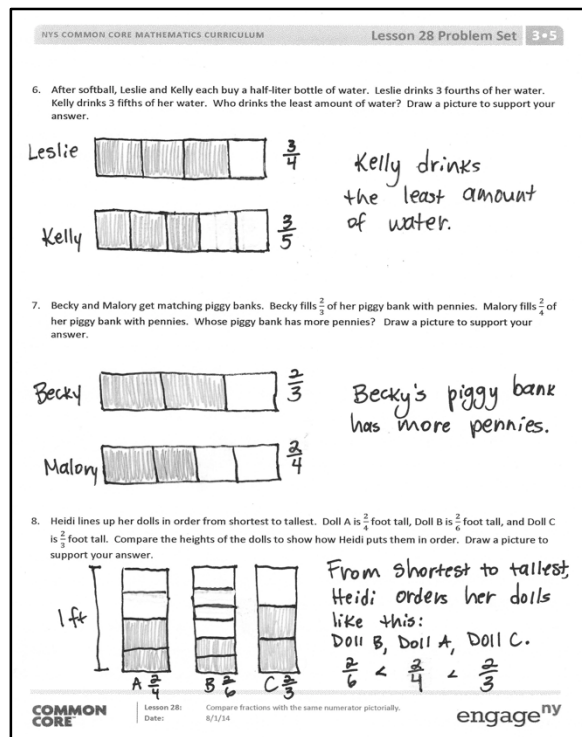 NYS COMMON CORE MATHEMATICS CURRICULUM Lesson 28 Problem Set 3•5
6. After softball, Leslie and Kelly each buy a half-liter bottle of water. Leslie drinks 3 fourths of her water.
Kelly drinks 3 fifths of her water. Who drinks the least amount of water? Draw a picture to support your
answer.
Leslie 3/4
Kelly 3/5
Kelly drinks
the least amount
of water.
7. Becky and Malory get matching piggy banks. Becky fills 2/3 of her piggy bank with pennies. Malory fills 2/4 of
her piggy bank with pennies. Whose piggy bank has more pennies? Draw a picture to support your
answer.
Becky 2/3
Malory 2/4
Becky's piggy bank
has more pennies.
8. Heidi lines up her dolls in order from shortest to tallest. Doll A is 2/4 foot tall, Doll B is 2/6 foot tall, and Doll C
is 2/3 foot tall. Compare the heights of the dolls to show how Heidi puts them in order. Draw a picture to
support your answer.
1 ft
A 2/4 B 2/6 C 2/3
From shortest to tallest,
Heidi orders her dolls
like this:
Doll B, Doll A, Doll C.
2/6 < 2/4 < 2/3
COMMON
CORE™
Lesson 28: Compare fractions with the same numerator pictorially.
Date: 8/1/14
engage ny